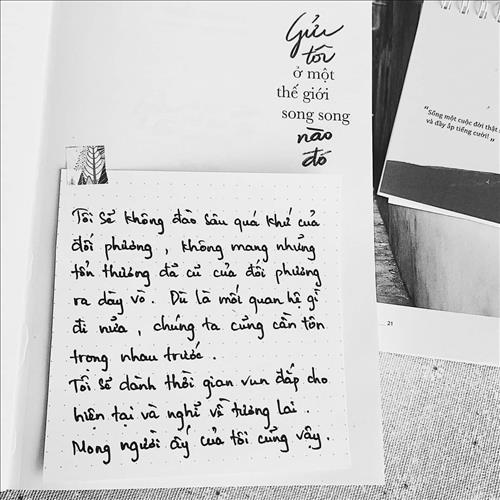 Gửi
tôi
ở một
thế giới
song song
nào
đó
"Sống một cuộc đời thật
và đầy ắp tiếng cười!"
Tôi sẽ không đào sâu quá khứ của
đối phương, không mang những
tổn thương đã cũ của đối phương
ra dày vò. Dù là mối quan hệ gì
đi nữa, chúng ta cũng cần tôn
trọng nhau trước.
Tôi sẽ dành thời gian vun đắp cho
hiện tại và nghĩ về tương lai.
Mong người ấy của tôi cũng vậy.
21